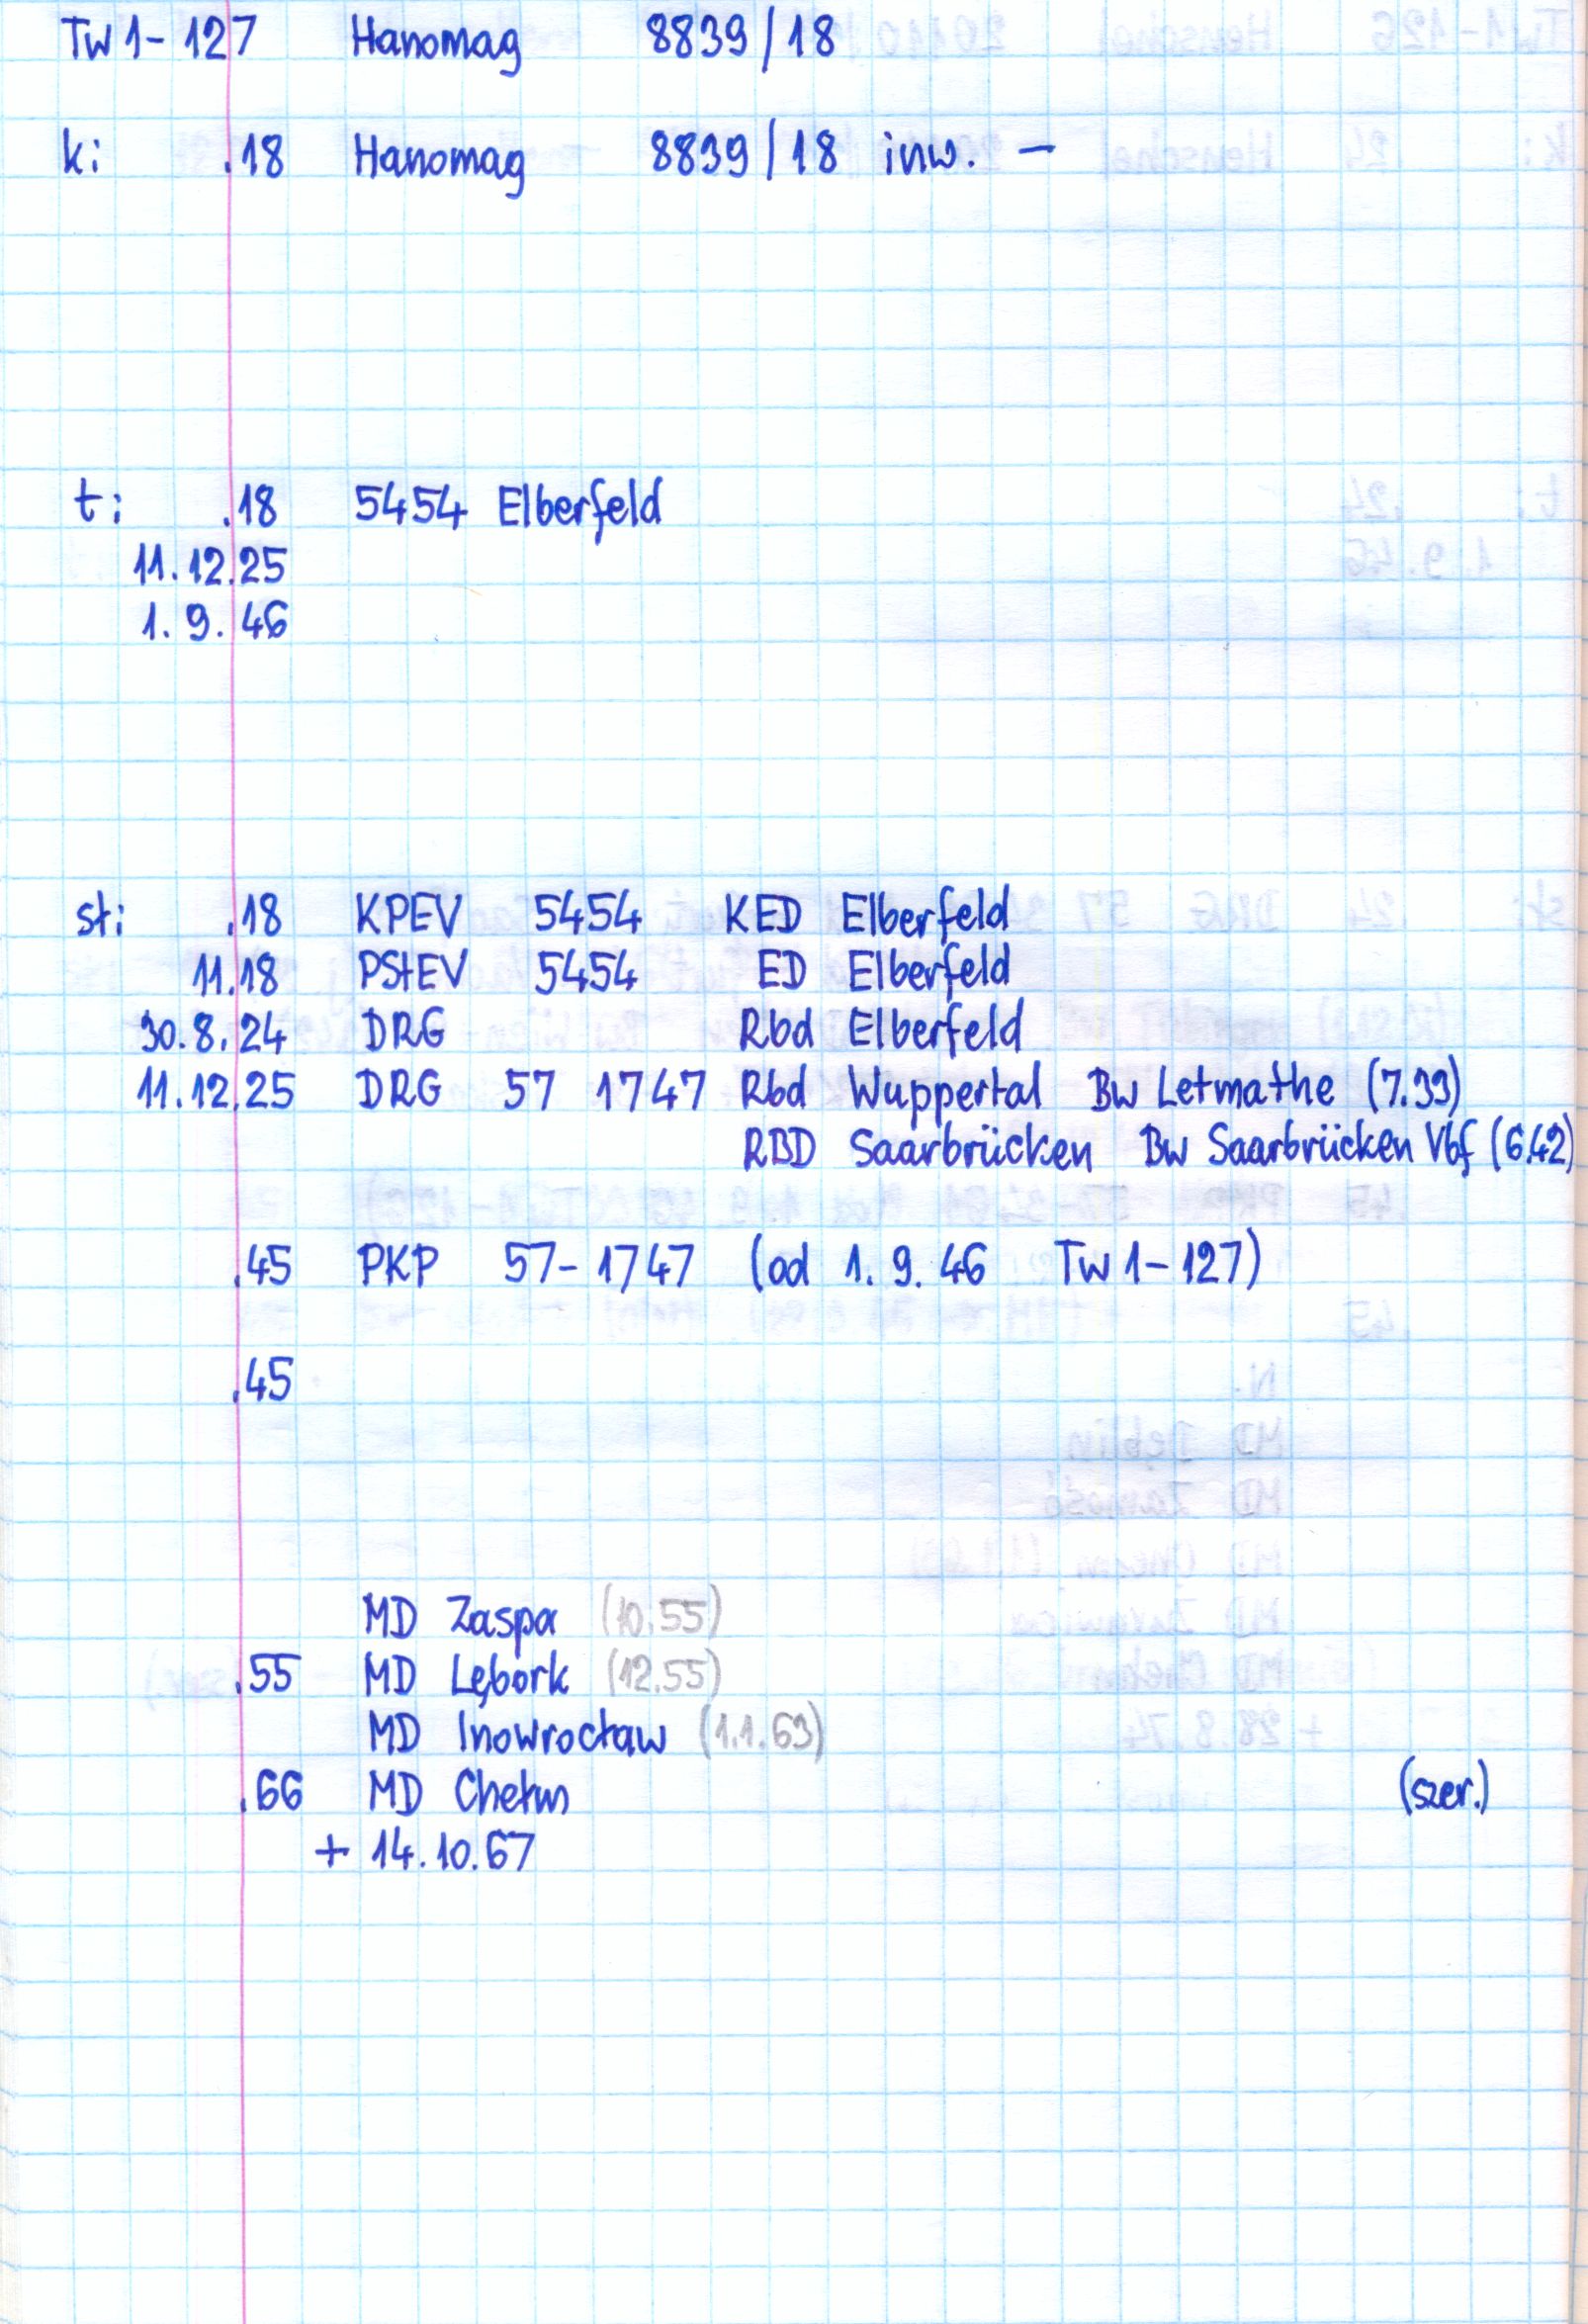 Tw 1-127 Hanomag 8839/18
k: .18 Hanomag 8839/18 inw. -
t: .18 5454 Elberfeld
11.12.25
1. 9. 46
st: .18 KPEV 5454 KED Elberfeld
11.18 PStEV 5454 ED Elberfeld
30.8.24 DRG Rbd Elberfeld
11.12.25 DRG 57 1747 Rbd Wuppertal Bw Letmathe (7.33)
RBD Saarbrücken Bw Saarbrücken Vbf (6.42)
.45 PKP 57-1747 (od 1. 9. 46 Tw 1-127)
.45
MD Zaspa (10.55)
.55 MD Lębork (12.55)
MD Inowrocław (1.1.63)
.66 MD Chełm (szer.)
+ 14.10.67